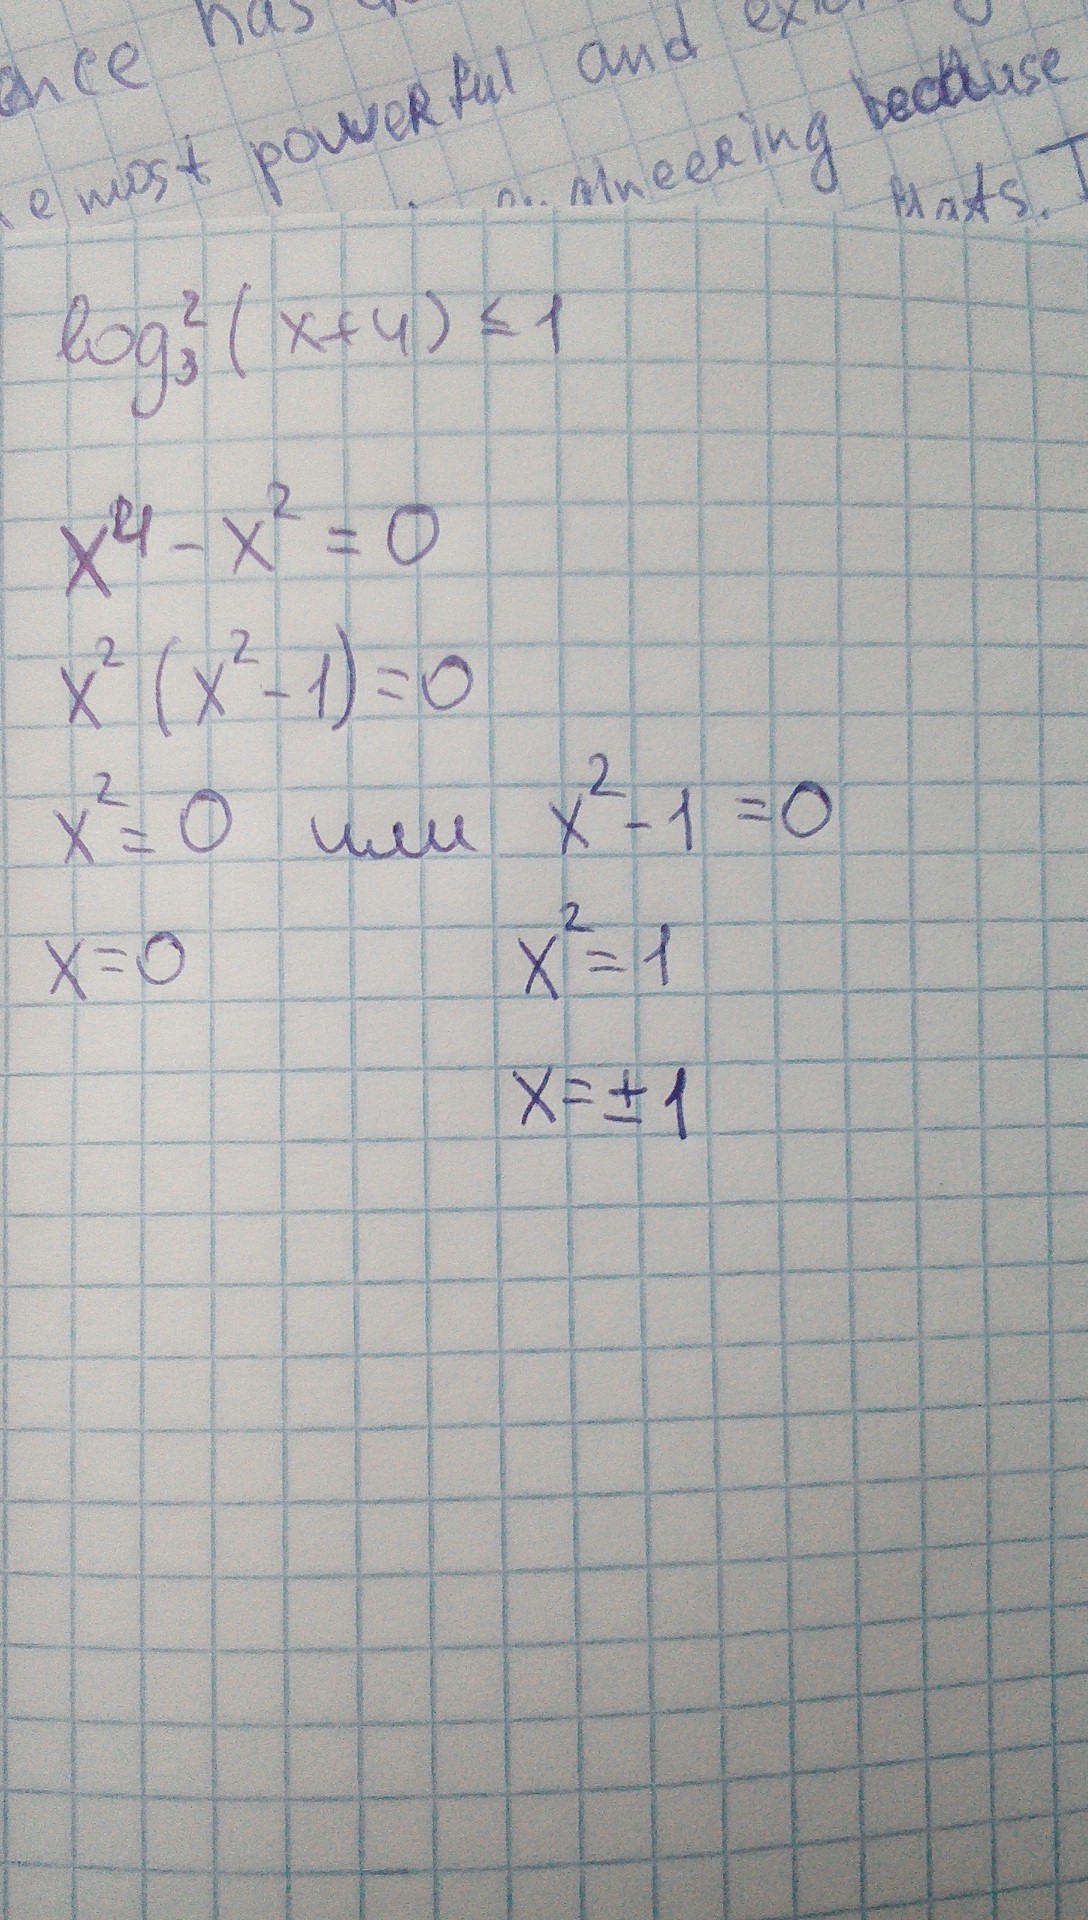 has
ence
e most powerful and
ineering because
log₃²(x+4) ≤ 1
x⁴ - x² = 0
x² (x² - 1) = 0
x² = 0 или x² - 1 = 0
x = 0 x² = 1
x = ± 1